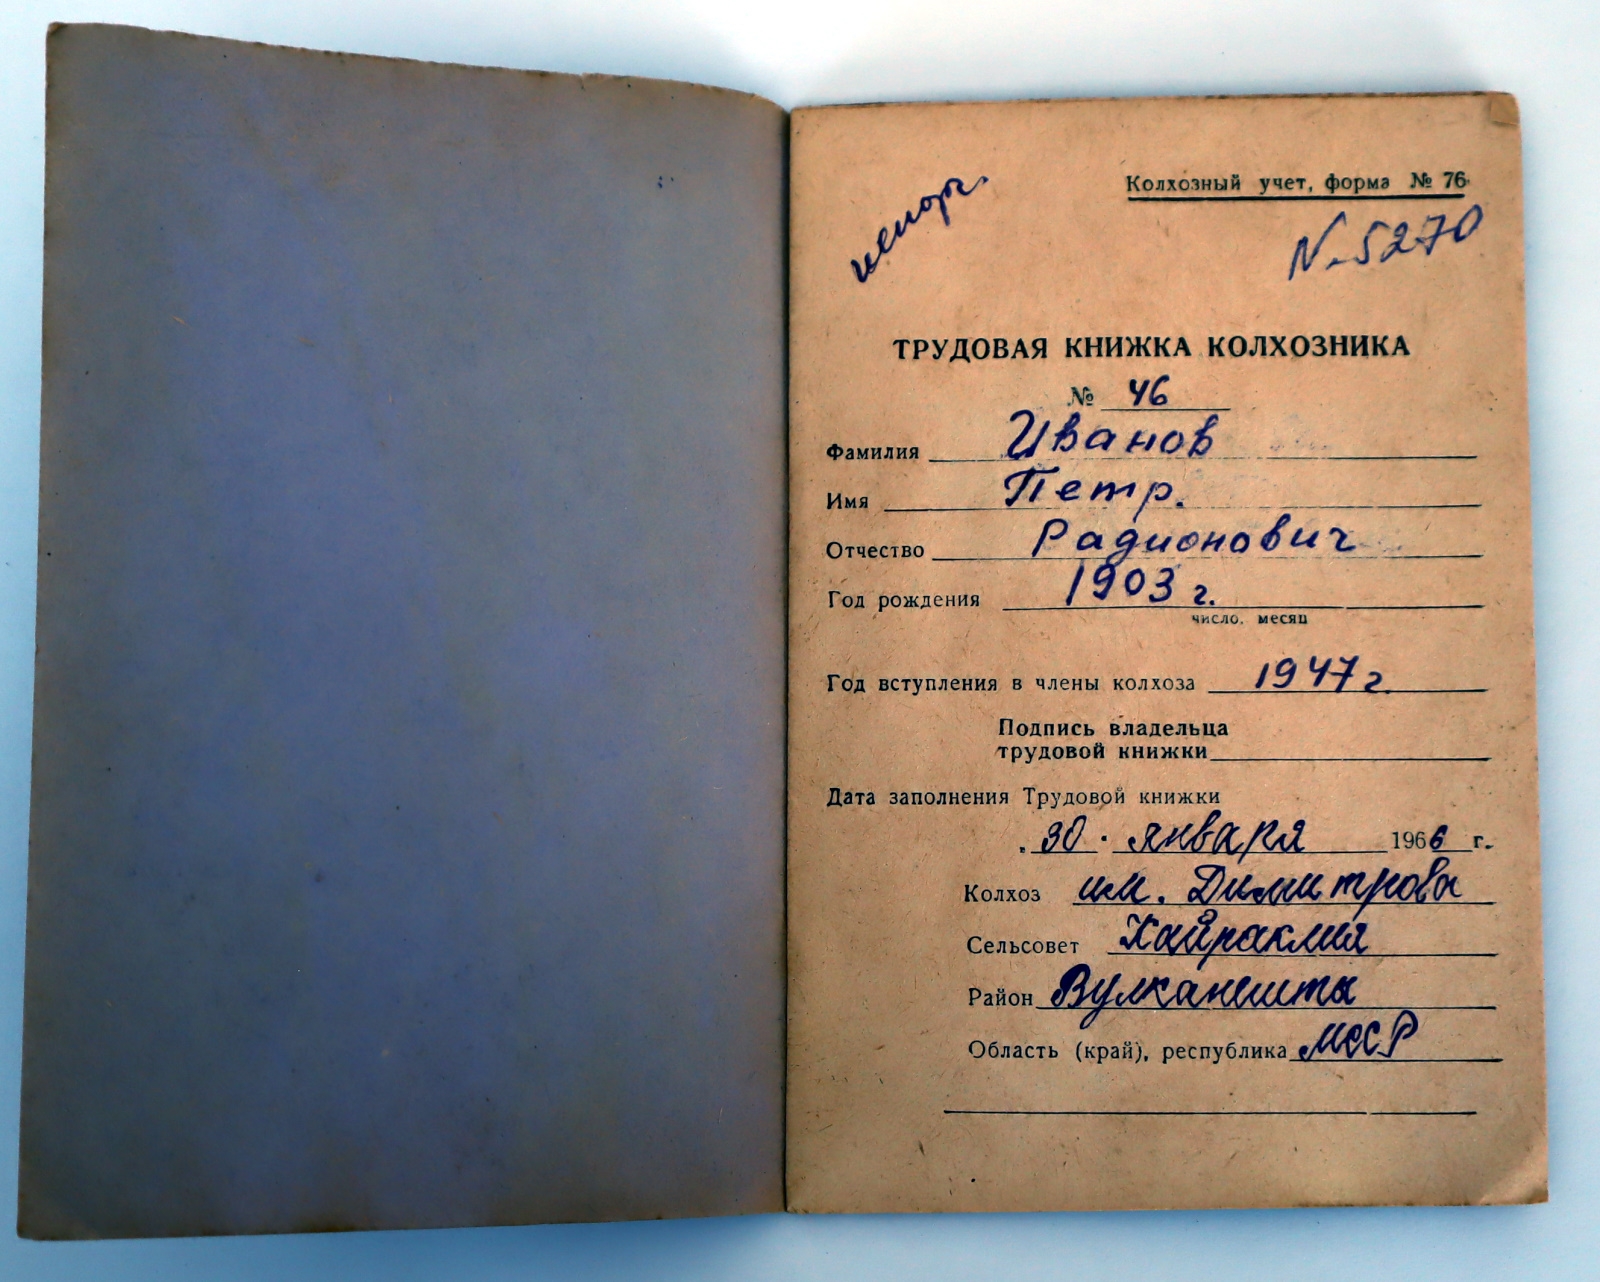 Колхозный учет, форма № 76
N. 5270
ТРУДОВАЯ КНИЖКА КОЛХОЗНИКА
№ 46
Фамилия Иванов
Имя Петр.
Отчество Радионович
Год рождения 1903 г.
число, месяц
Год вступления в члены колхоза 1947 г.
Подпись владельца
трудовой книжки
Дата заполнения Трудовой книжки
30. января 1966 г.
Колхоз им. Димитрова
Сельсовет Хайраклия
Район Вулканешты
Область (край), республика МССР